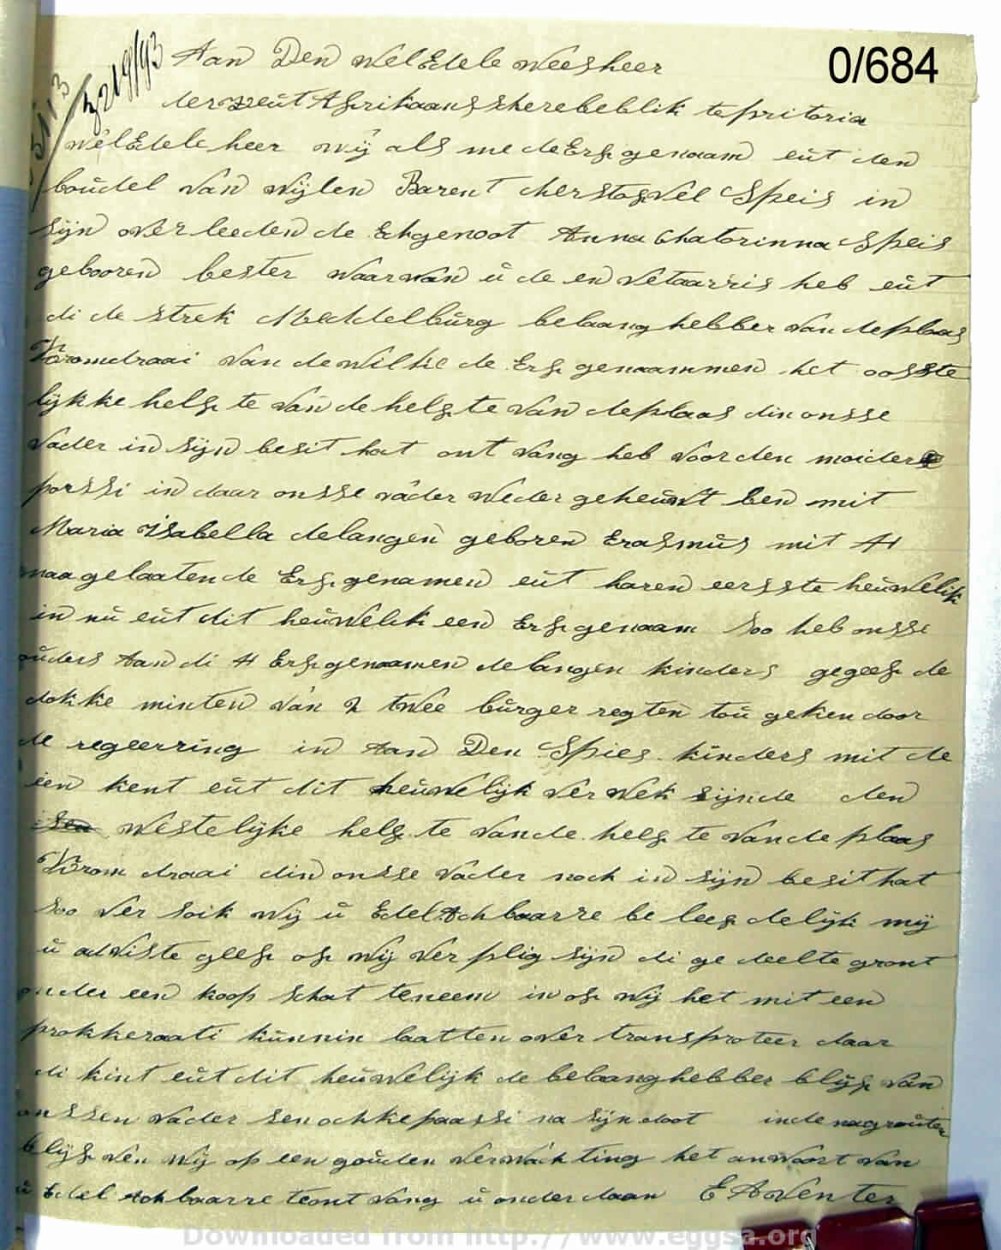 3219/93
Aan Den WelEdele Weesheer
0/684
der zeut Afrikaans sherebeblik te pritoria
welEdele heer wÿ als mede Erfgenaam eut den
boudel van wijlen Barent cherstofvel Speis in
sijn overleeden de Echgenoot Anna Chatorinna Speis
gebooren bester waarvan u de en vetaarris heb eut
di de strek Meddelburg belaang hebber van de plaas
Kromdraai van de wilke de Erfgenaammen het oosste
lijkke helfte van de helfte van de plaas din onsse
vader in sijn besit hat ont vang heb voor den moider
porssi in daar onsse vader weder geheuwt ben mit
Maria Isabella delangen geboren Erasmus mit 4
naagelaaten de Erfgenamen eut haren eersste heuwelik
in nu eut dit heuwelik een Erfgenaam Soo heb onsse
ouders Aan di 4 Erfgenaamen delangen kinders gegeef de
dokke minten van 2 twee burger regten tou geken door
de regeerring in Aan Den Spies kinders mit de
ien kent eut dit heuwelijk ver wek sijnde den
westelijke helfte van de helfte van de plaas
Krom draai din onsse vader noch in sijn besit hat
Soo ver soik wij u EdelAchbaarre be leef delijk mij
u adviste geef of wij ver plig sijn di ge deelte gront
onder een koop schat teneem in of wij het mit een
prokkeraati kunnin laatten over transporteer daar
di kint eut dit heuwelijk de belaanghebber blijf van
onssen vader sen ochkepaassi na sijn doot in de nagrouten
blijf ven wij op een gouden verwachting het anwoort van
u Edel Achbaarre teont vang u onder daan E A Venter
Downloaded from http://www.eggsa.org